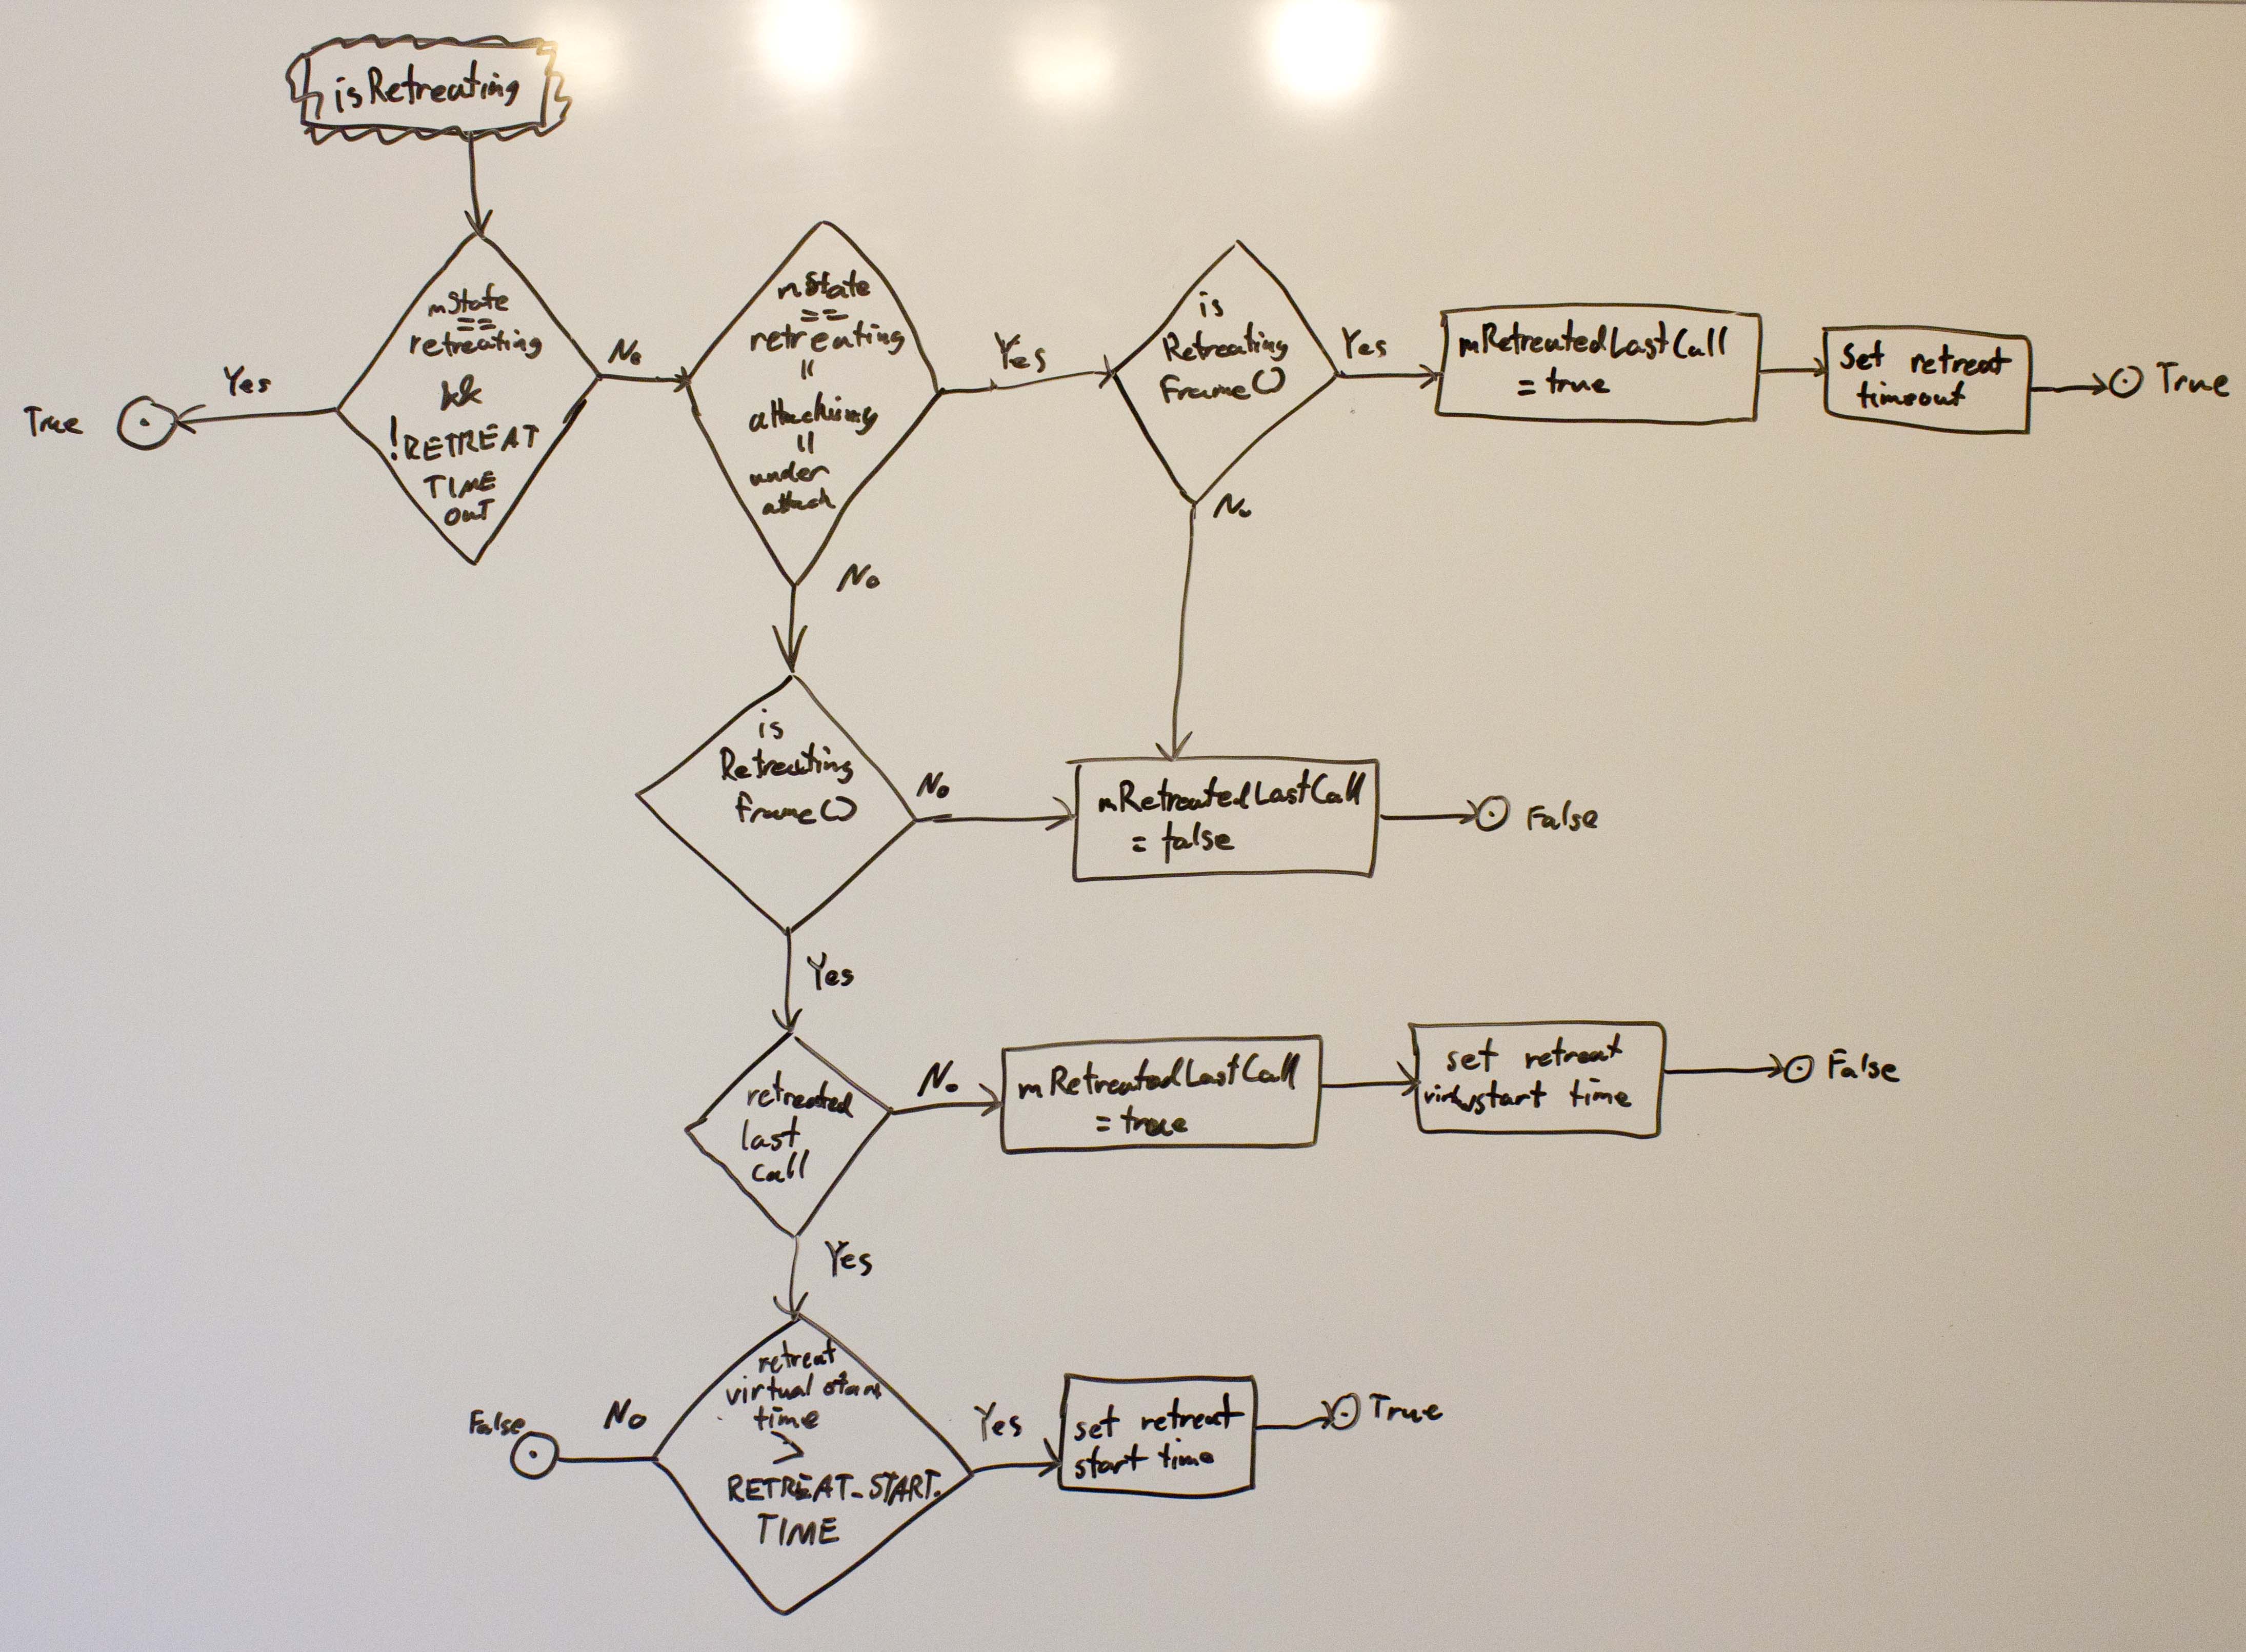 isRetreating
mState
==
retreating
&&
!RETREAT
TIME
OUT
Yes
True
No
mState
==
retreating
||
attacking
||
under
attack
Yes
is
Retreating
Frame()
Yes
mRetreatedLastCall
= true
Set retreat
timeout
True
No
No
is
Retreating
Frame()
No
mRetreatedLastCall
= false
False
Yes
retreated
last
call
No
mRetreatedLastCall
= true
set retreat
start time
False
Yes
retreat
virtual start
time
>
RETREAT_START_
TIME
No
False
Yes
set retreat
start time
True